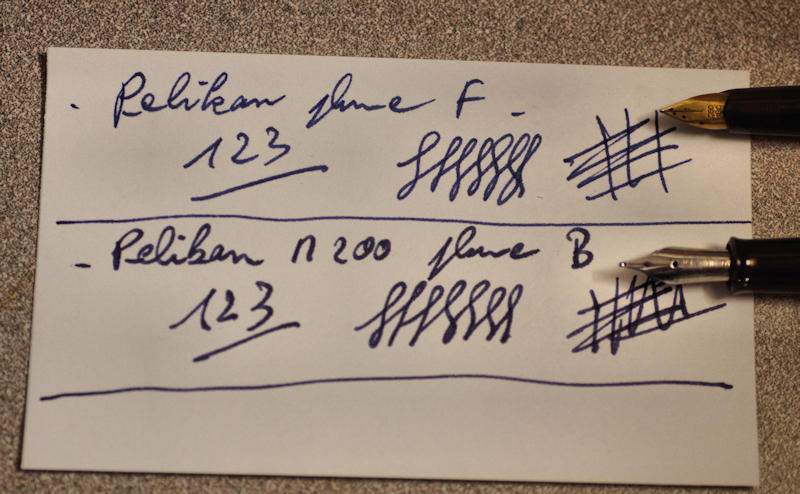 - Pelikan plume F -
123
- Pelikan M200 plume B
123